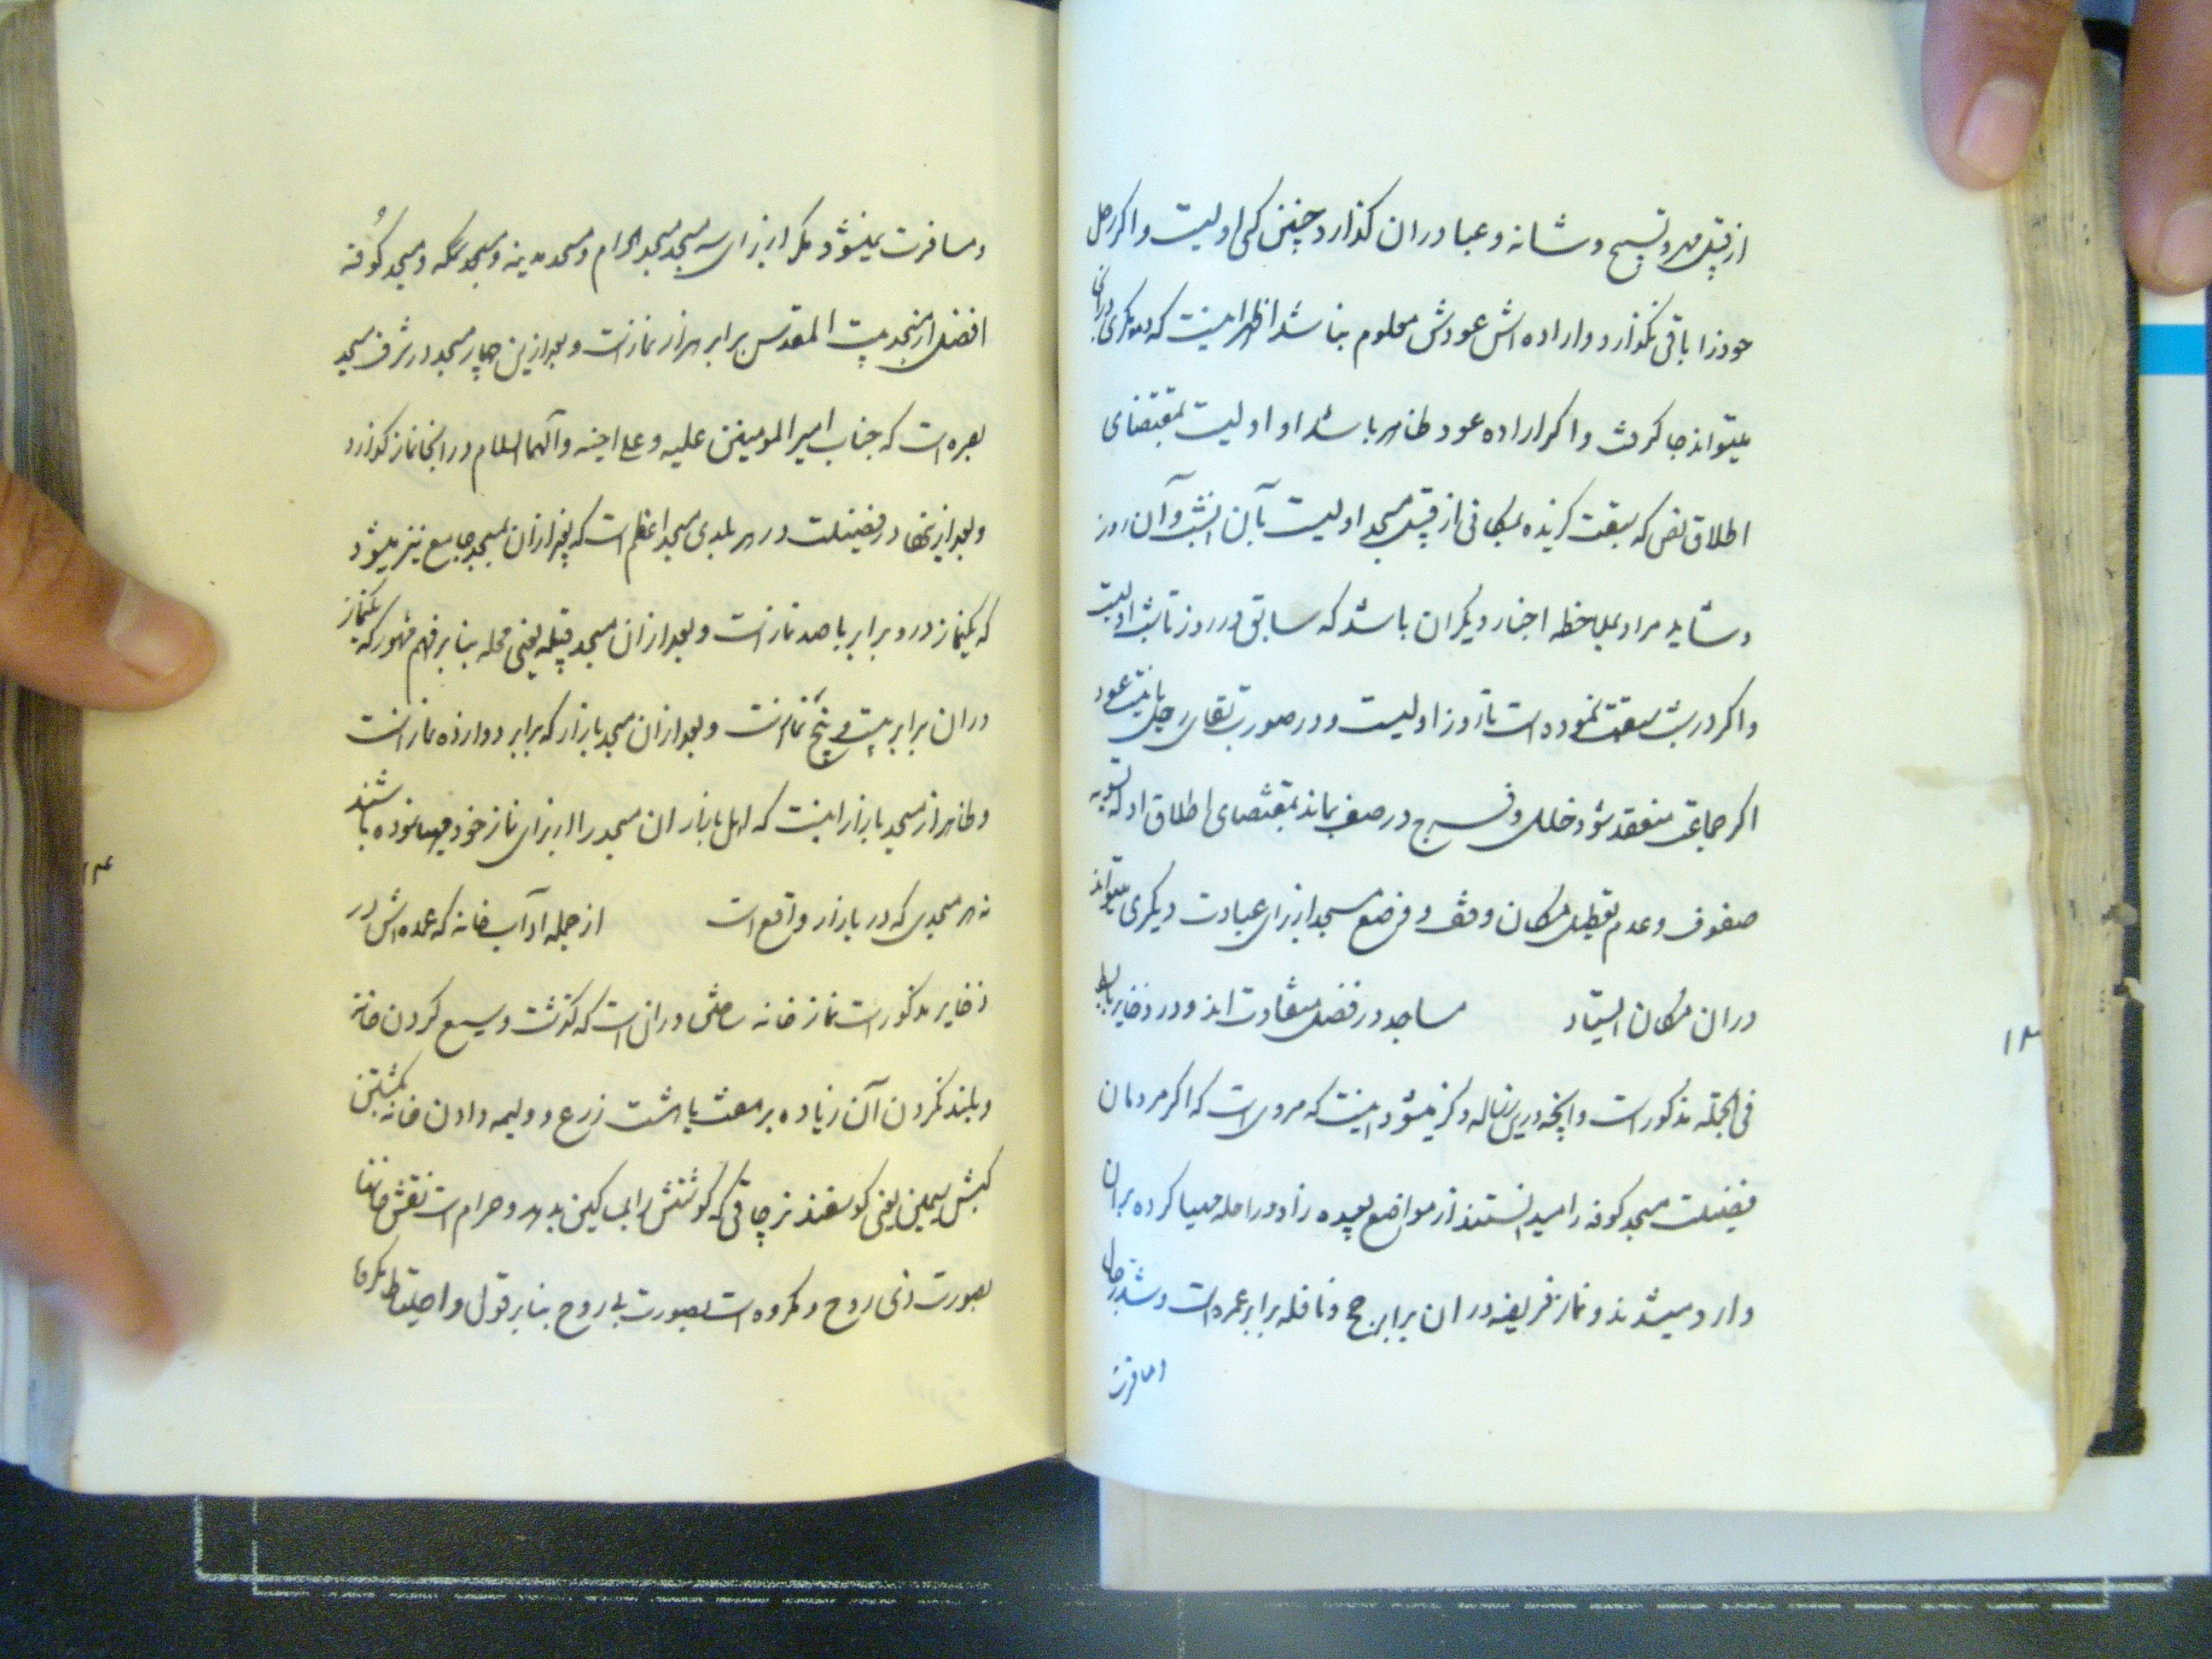 از قبیل مهر و تسبیح و شانه و عبا در ان کذارد چنین کسی اولیست و اکر رحل
خودرا باقی نکذارد و اراده اش عودش معلوم نباشد اظهر اینست که دیکری در ان
میتواند جا کرفت و اکر اراده عود ظاهر باشد او اولیست بمقتضای
اطلاق نص که سبقت کرینده بمکانی از قبیل مسجد اولیست بآن انشب و آن روز
و شاید مراد بملاحظه اخبار دیکران باشد که سابق در روز تا شب اولیست
و اکر در شب سبقت نموده است تا روز اولیست و در صورت بقای رحل با نیت عود
اکر جماعت منعقد شود خلل و فرج در صف بماند بمقتضای اطلاق ادله تسویه
صفوف و عدم تعطیل مکان وقف و وضع مسجد از برای عبادت دیکری میتواند
در ان مکان ایستاد مساجد در فضل متفاوت اند و در ذخایر بالبسط
فی الجمله مذکور است و آنچه در این رساله ذکر میشود اینست که مروی است که اکر مردمان
فضیلت مسجد کوفه را میدانستند از مواضع بعیده زاد و راحله مهیا کرده بران
وارد میشدند و نماز فریضه در ان برابر حج و نافله برابر عمره است و شد رحال
و مسافرت
و مسافرت نمیشود مکر از برای سه مسجد مسجد الحرام و مسجد مدینه و مسجد مکه و مسجد کوفه
افضل از مسجد بیت المقدس برابر هزار نماز است و بعد از این چهار مسجد در شرف مسجد
بصره است که جناب امیر المومنین علیه و علی اخیه و آلهما السلام در انجا نماز کذارد
و بعد از اینها در فضیلت در هر بلدی مسجد اعظم است که تعبیر از ان بمسجد جامع نیز میشود
که یکنماز در و برابر با صد نماز است و بعد از ان مسجد قبیله یعنی محله بنا بر فهم مشهور که یکنماز
در ان برابر بیست و پنج نماز است و بعد از ان مسجد بازار که برابر دوازده نماز است
و ظاهر از مسجد بازار اینست که اهل بازار ان مسجد را از برای نماز خود مهیا نموده باشند
نه هر مسجدی که در بازار واقع است از جمله آداب خانه که عمده اش در
ذخایر مذکور است نماز خانه ساختن در ان است که کذشت وسیع کردن خانه
و بلند نکردن آن زیاده بر هفت یا هشت زرع و ولیمه دادن خانه بکشتن
کبش سمین یعنی کوسفند نر چاقی که کوشتش را بمساکین بدهد و حرام است نقش خانها
بصورت ذی روح و مکروه است بصورت بی روح بنا بر قول و احتیاط